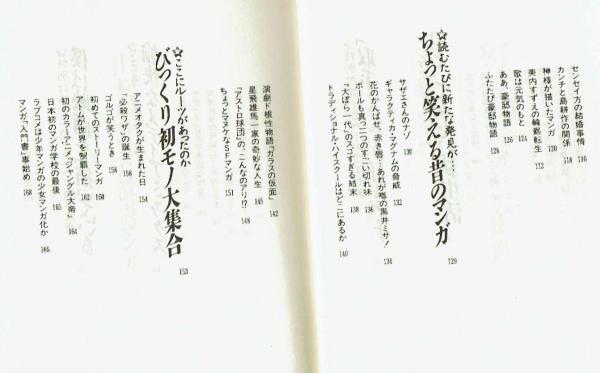 センセイ方の結婚事情 116
カンチと島耕作の関係 118
神様が描いたマンガ 120
美内すずえの輪廻転生 112
歌は元気のもと 124
ああ、豪邸物語 126
ふたたび豪邸物語
☆読むたびに新たな発見が…
ちょっと笑える昔のマンガ 129
サザエさんのナゾ 130
ギャラクティカ・マグナムの脅威 132
花のかんばせ、赤き唇…あれが噂の黒井ミサ! 134
ボールも真っ二つのすごい切れ味 136
「大ぼら一代」のスゴすぎる結末 138
トラディショナル・ハイスクールはどこにあるか 140
演劇ド根性物語「ガラスの仮面」 142
星飛雄馬一家の奇妙な人生 145
「アストロ球団」の、こんなのアリ!? 148
ちょっとマヌケなSFマンガ 151
☆ここにルーツがあったのか
びっくり初モノ大集合 153
アニメオタクが生まれた日 154
「必殺ワザ」の誕生 156
ゴルゴが笑うとき 158
初めてのストーリーマンガ 160
アトムが世界を制覇した 162
初のカラーアニメ「ジャングル大帝」 164
日本初のマンガ学校の最後 165
ラブコメは少年マンガの少女マンガ化か 166
マンガ「入門書」事始め 168